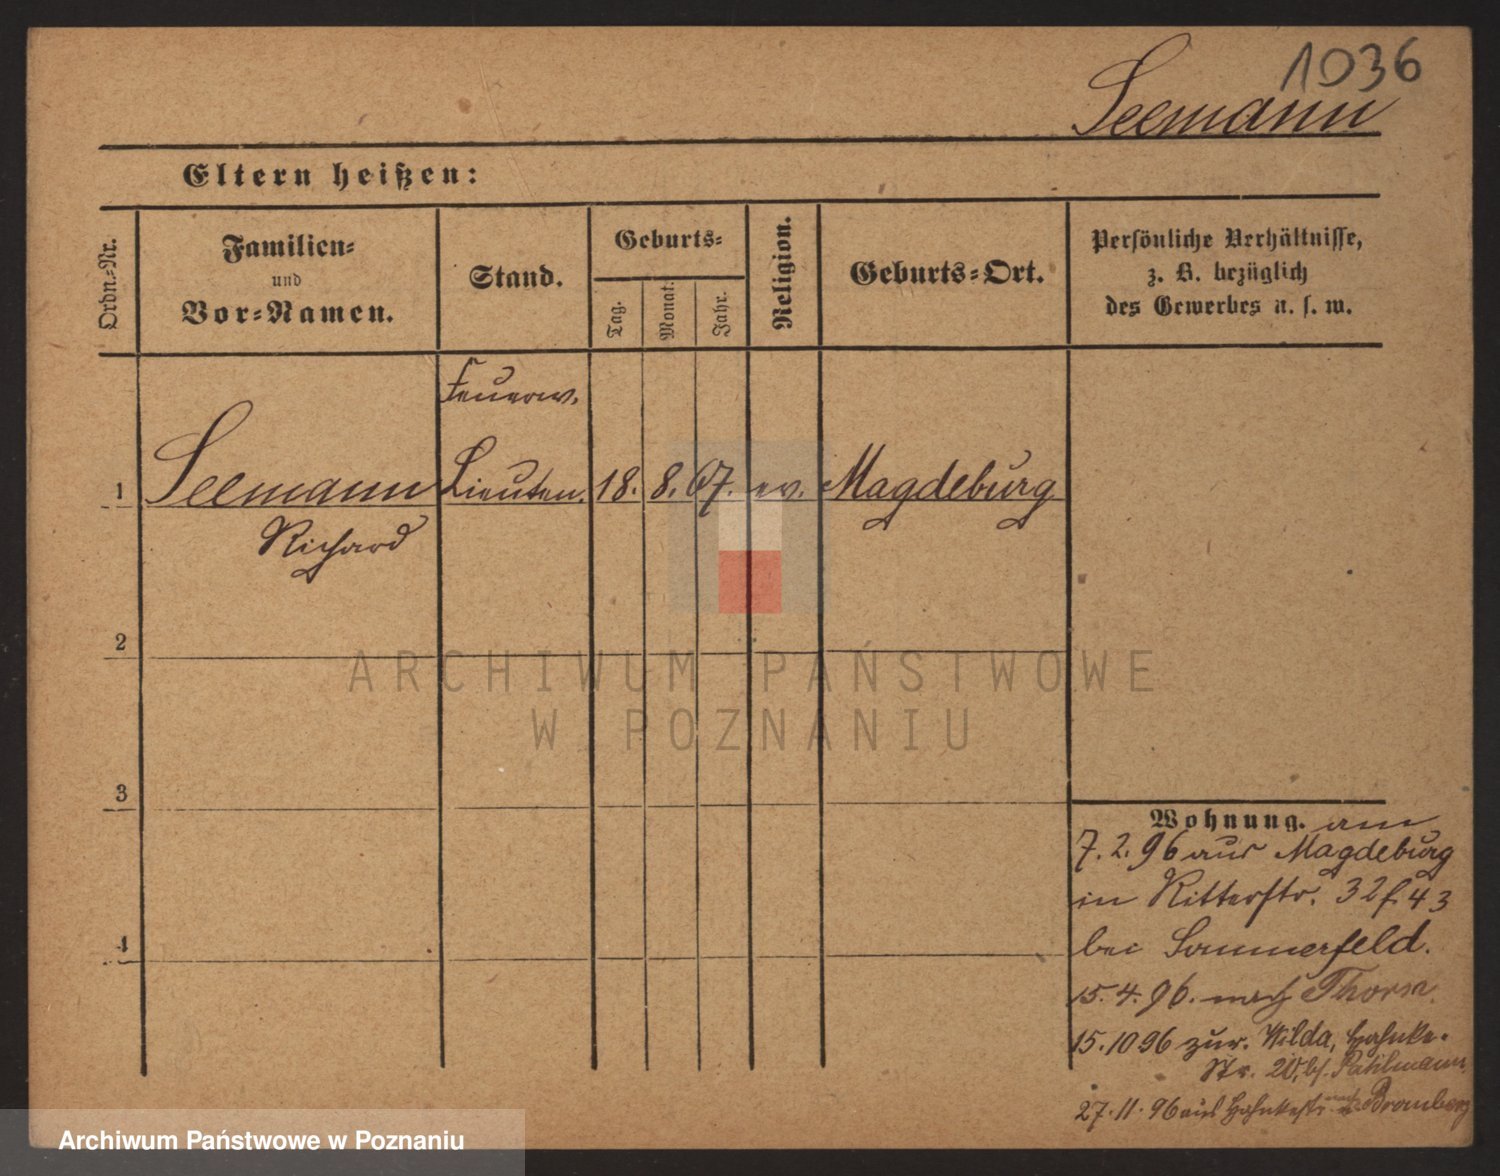 1036
Seemann
Eltern heißen:
Ordn.-Nr.
Familien-
und
Vor-Namen.
Stand.
Geburts-
Tag.
Monat.
Jahr.
Religion.
Geburts-Ort.
Persönliche Verhältnisse,
z. B. bezüglich
des Gewerbes u. s. w.
Feuerw.
1 Seemann Lieuten. 18. 8. 67. ev. Magdeburg
Richard
2
ARCHIWUM PAŃSTWOWE
W POZNANIU
3
Wohnung. am
7. 2. 96 aus Magdeburg
in Ritterstr. 32 f. 43
bei Sommerfeld.
15. 4. 96. nach Thorn.
15. 10 96 zur. Wilda, Hahnke-
Str. 20, bf. Pahlmann
4
27. 11. 96 aus Hahnkestr. nach Bromberg
Archiwum Państwowe w Poznaniu